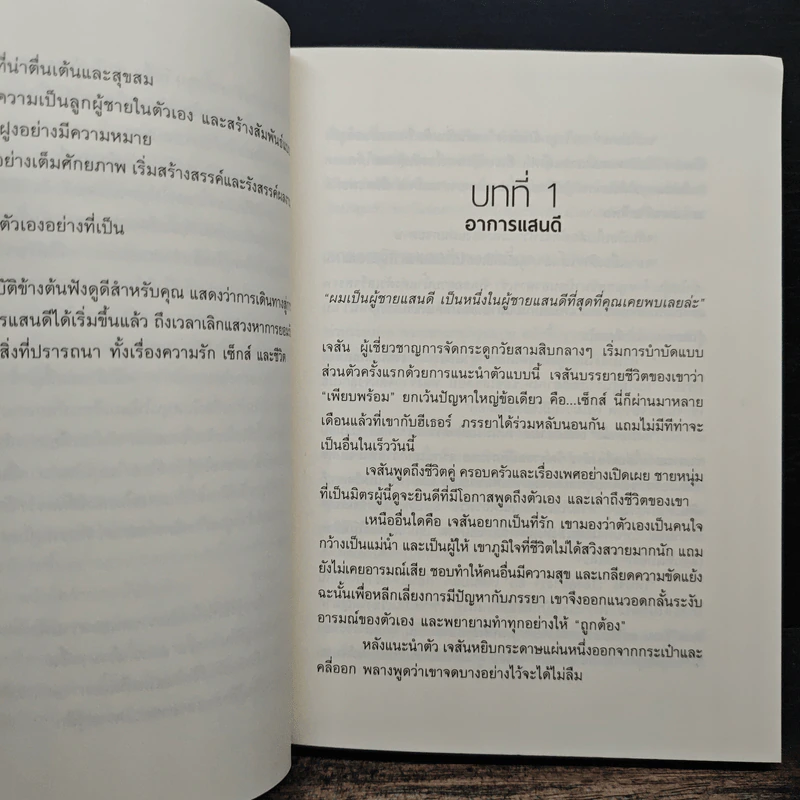 ที่น่าตื่นเต้นและสุขสม
ความเป็นลูกผู้ชายในตัวเอง และสร้างสัมพันธ์
ฝูงอย่างมีความหมาย
อย่างเต็มศักยภาพ เริ่มสร้างสรรค์และรังสรรค์
ตัวเองอย่างที่เป็น
บัติข้างต้นฟังดูดีสำหรับคุณ แสดงว่าการเดินทาง
รแสนดีได้เริ่มขึ้นแล้ว ถึงเวลาเลิกแสวงหาการ
สิ่งที่ปรารถนา ทั้งเรื่องความรัก เซ็กส์ และชีวิต
บทที่ 1
อาการแสนดี
"ผมเป็นผู้ชายแสนดี เป็นหนึ่งในผู้ชายแสนดีที่สุดที่คุณเคยพบเลยล่ะ"
เจสัน ผู้เชี่ยวชาญการจัดกระดูกวัยสามสิบกลางๆ เริ่มการบำบัดแบบ
ส่วนตัวครั้งแรกด้วยการแนะนำตัวแบบนี้ เจสันบรรยายชีวิตของเขาว่า
"เพียบพร้อม" ยกเว้นปัญหาใหญ่ข้อเดียว คือ...เซ็กส์ นี่ก็ผ่านมาหลาย
เดือนแล้วที่เขากับฮีเธอร์ ภรรยาได้ร่วมหลับนอนกัน แถมไม่มีทีท่าจะ
เป็นอื่นในเร็ววันนี้
เจสันพูดถึงชีวิตคู่ ครอบครัวและเรื่องเพศอย่างเปิดเผย ชายหนุ่ม
ที่เป็นมิตรผู้นี้ดูจะยินดีที่มีโอกาสพูดถึงตัวเอง และเล่าถึงชีวิตของเขา
เหนืออื่นใดคือ เจสันอยากเป็นที่รัก เขามองว่าตัวเองเป็นคนใจ
กว้างเป็นแม่น้ำ และเป็นผู้ให้ เขาภูมิใจที่ชีวิตไม่ได้สวิงสวายมากนัก แถม
ยังไม่เคยอารมณ์เสีย ชอบทำให้คนอื่นมีความสุข และเกลียดความขัดแย้ง
ฉะนั้นเพื่อหลีกเลี่ยงการมีปัญหากับภรรยา เขาจึงออกแนวอดกลั้นระงับ
อารมณ์ของตัวเอง และพยายามทำทุกอย่างให้ "ถูกต้อง"
หลังแนะนำตัว เจสันหยิบกระดาษแผ่นหนึ่งออกจากกระเป๋าและ
คลี่ออก พลางพูดว่าเขาจดบางอย่างไว้จะได้ไม่ลืม